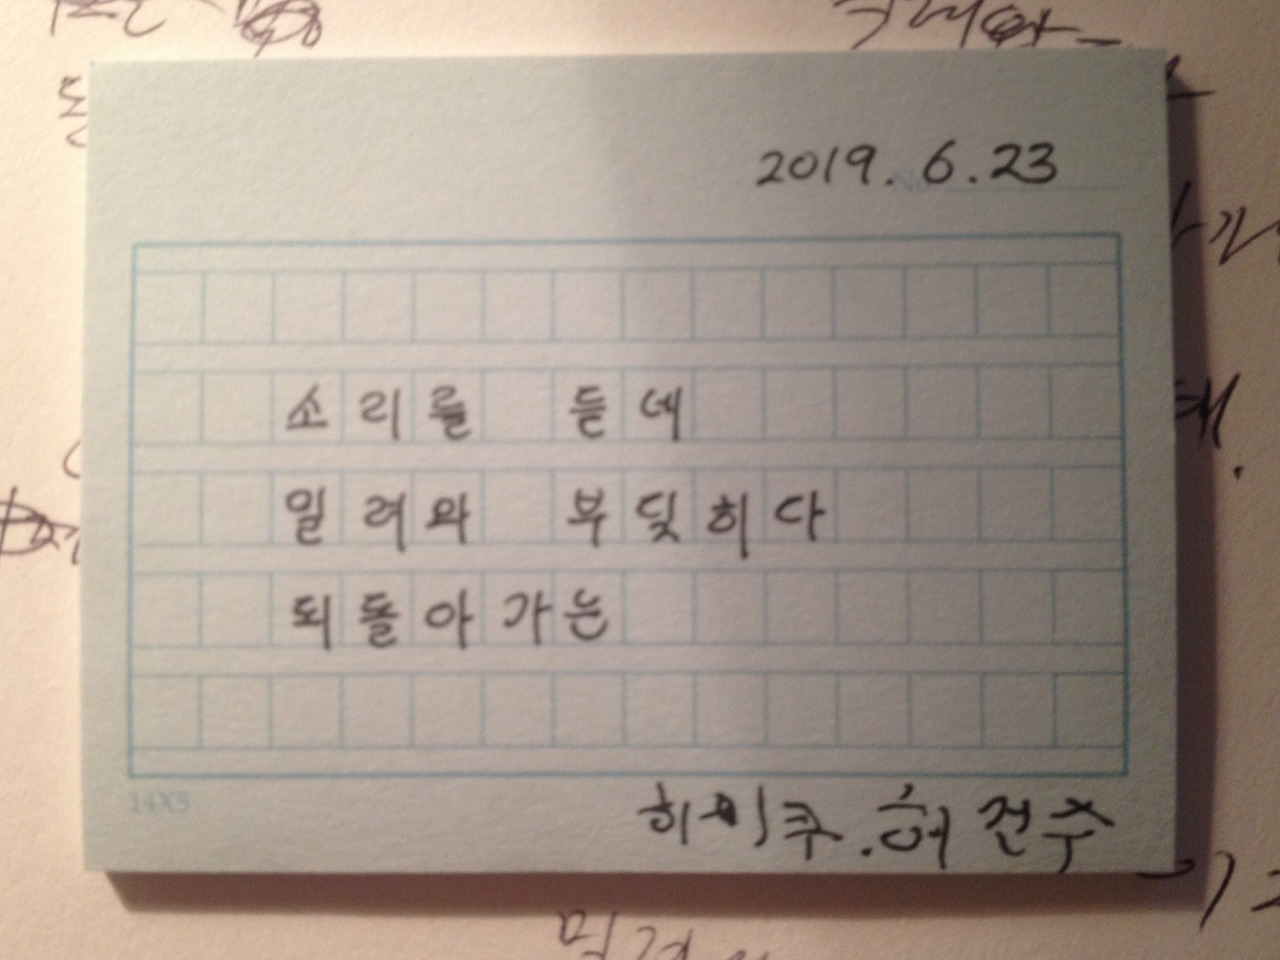 2019. 6. 23
소리를 듣네
밀려와 부딪히다
되돌아가는
14X5
하이쿠. 허건수